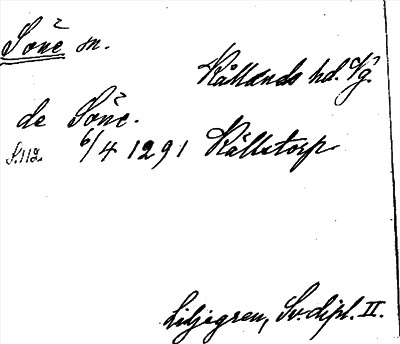 Sōne sn.
Kållands hd. Vg.
de Sōne.
S. 112. 6/4 1291 Källstorp
Liljegren, Sv. dipl. II.